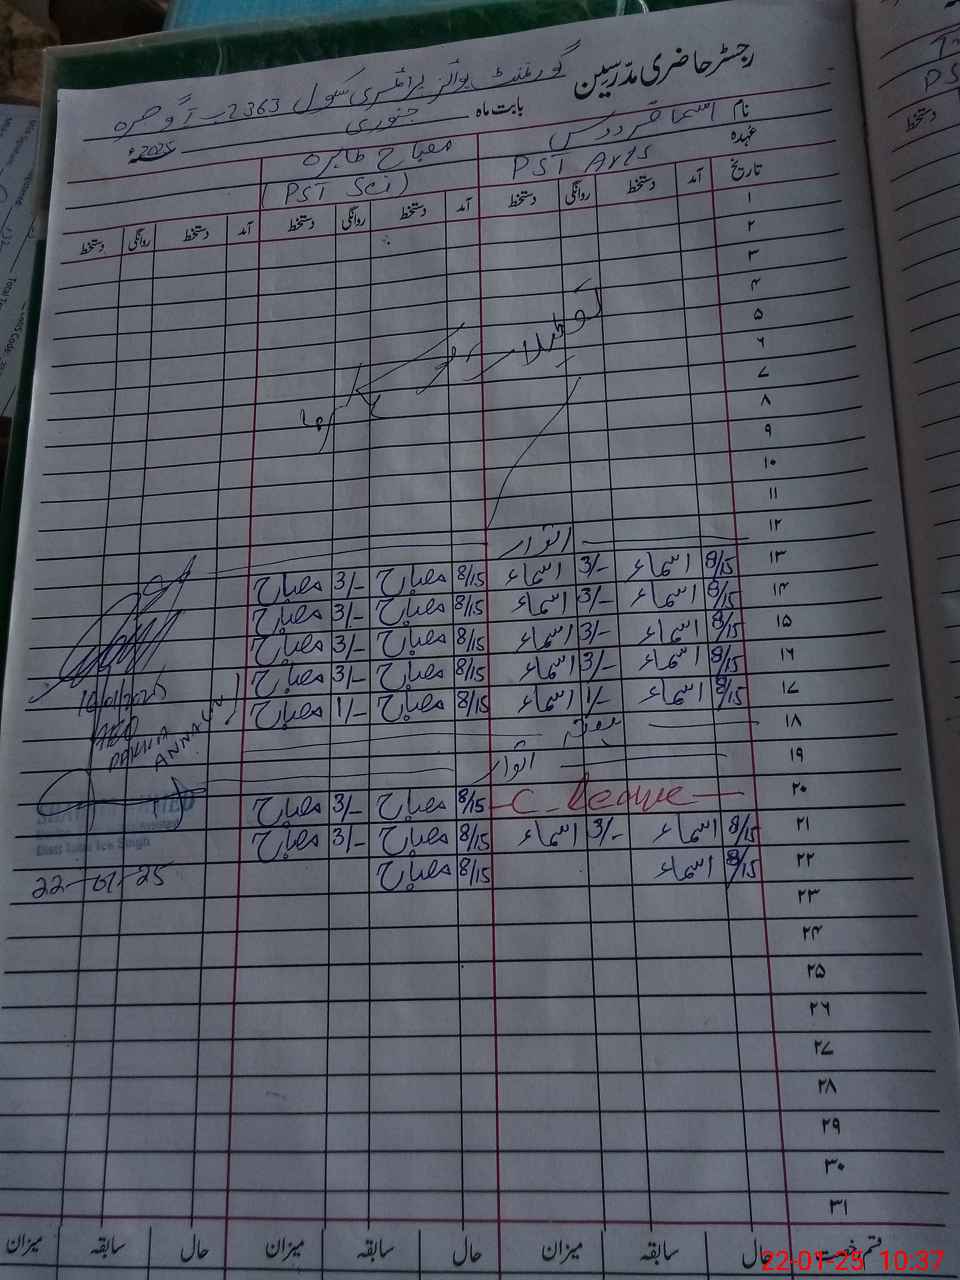 رجسٹر حاضری مدرسین
گورنمنٹ بوائز پرائمری سکول 2363
بابت ماہ جنوری 2025ء
نام اسماء فردوس مصباح طاہرہ
عہدہ PST Arts (PST Sci)
تاریخ آمد دستخط روانگی دستخط آمد دستخط روانگی دستخط آمد دستخط روانگی دستخط
۱
۲
۳
۴
۵
۶
۷
۸
۹
۱۰
۱۱
۱۲ اتوار
۱۳ 8/15 اسماء 3/- اسماء 8/15 مصباح 3/- مصباح
۱۴ 8/15 اسماء 3/- اسماء 8/15 مصباح 3/- مصباح
۱۵ 8/15 اسماء 3/- اسماء 8/15 مصباح 3/- مصباح
۱۶ 8/15 اسماء 3/- اسماء 8/15 مصباح 3/- مصباح
۱۷ 8/15 اسماء 1/- اسماء 8/15 مصباح 1/- مصباح
۱۸ ہفتہ
۱۹ اتوار
۲۰ C. Leave 8/15 مصباح 3/- مصباح
۲۱ 8/15 اسماء 3/- اسماء 8/15 مصباح 3/- مصباح
۲۲ 8/15 اسماء 8/15 مصباح
22-01-25
۲۳
۲۴
۲۵
۲۶
۲۷
۲۸
۲۹
۳۰
۳۱
قسم رخصت حال سابقہ میزان حال سابقہ میزان حال سابقہ میزان
22-01-25 10:37